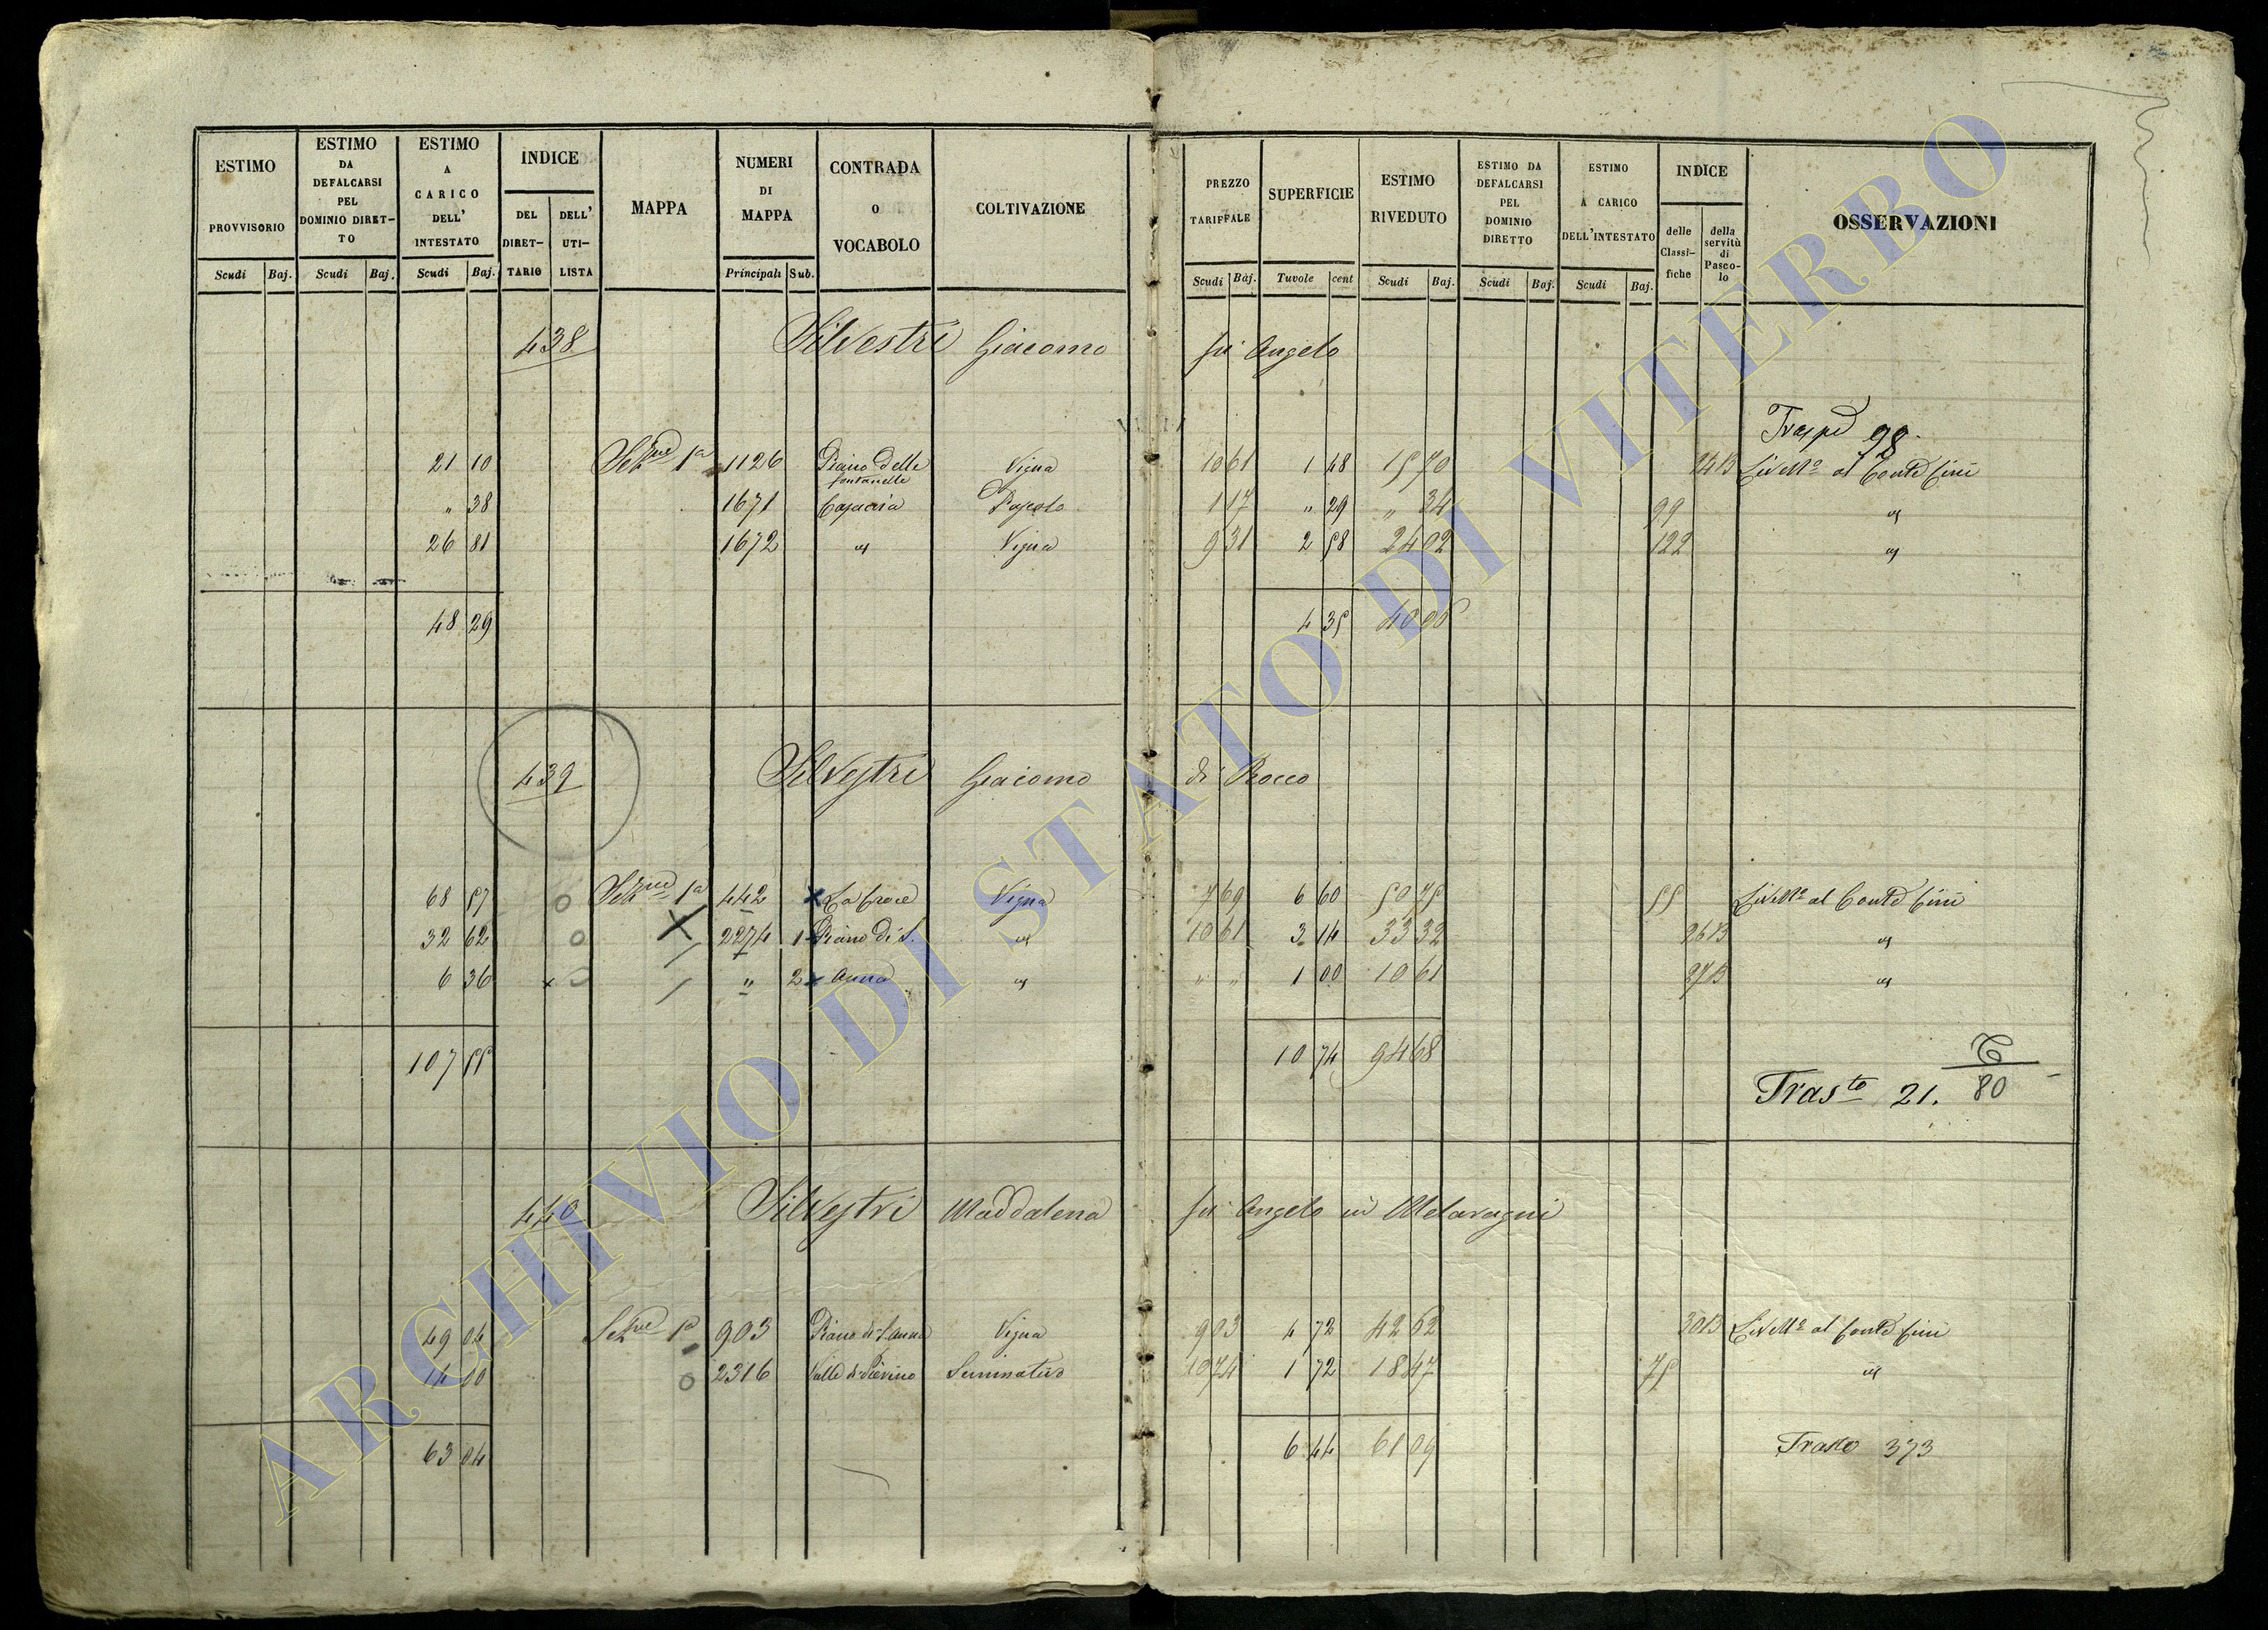 ESTIMO PROVVISORIO Scudi Baj.
ESTIMO DA DEFALCARSI PEL DOMINIO DIRET-TO Scudi Baj.
ESTIMO A CARICO DELL' INTESTATO Scudi Baj.
INDICE DEL DIRET-TARIO DELL' UTI-LISTA
MAPPA
NUMERI DI MAPPA Principali Sub.
CONTRADA O VOCABOLO
COLTIVAZIONE
PREZZO TARIFFALE Scudi Baj.
SUPERFICIE Tavole cent
ESTIMO RIVEDUTO Scudi Baj.
ESTIMO DA DEFALCARSI PEL DOMINIO DIRETTO Scudi Baj.
ESTIMO A CARICO DELL'INTESTATO Scudi Baj.
INDICE delle Classi-fiche della servitù di Pasco-lo
OSSERVAZIONI
438 Silvestri Giacomo fu Angelo
98.
21 10 Sezne 1a 1126 Piano delle fontanelle Vigna 10 61 1 48 15 70 24B Livello al Conte Cini
" 38 1671 Pascolo 1 17 " 29 " 34 99 "
26 81 1672 " Vigna 9 31 2 58 24 02 122 "
48 29 4 35 40 06
439 Silvestri Giacomo di Rocco
68 57 0 Sezne 1a 442 x La Croce Vigna 7 69 6 60 50 75 55 Livello al Conte Cini
32 62 0 X 2274 1 Piano di S. " 10 61 3 14 33 32 26B "
6 36 x 0 / " 2 x Anna " " " 1 00 10 61 27B "
107 55 10 74 94 68
Trasto 21. 80
440 Silvestri Maddalena fu Angelo in Melaragni
49 04 Sezne 1a 903 Piano di S. Anna Vigna 9 03 4 72 42 62 30B Livello al Conte Cini
14 00 0 2316 Valle di Seminativo 10 74 1 72 18 47 75 "
63 04 6 44 61 09
Trasto 373
ARCHIVIO DI STATO DI VITERBO